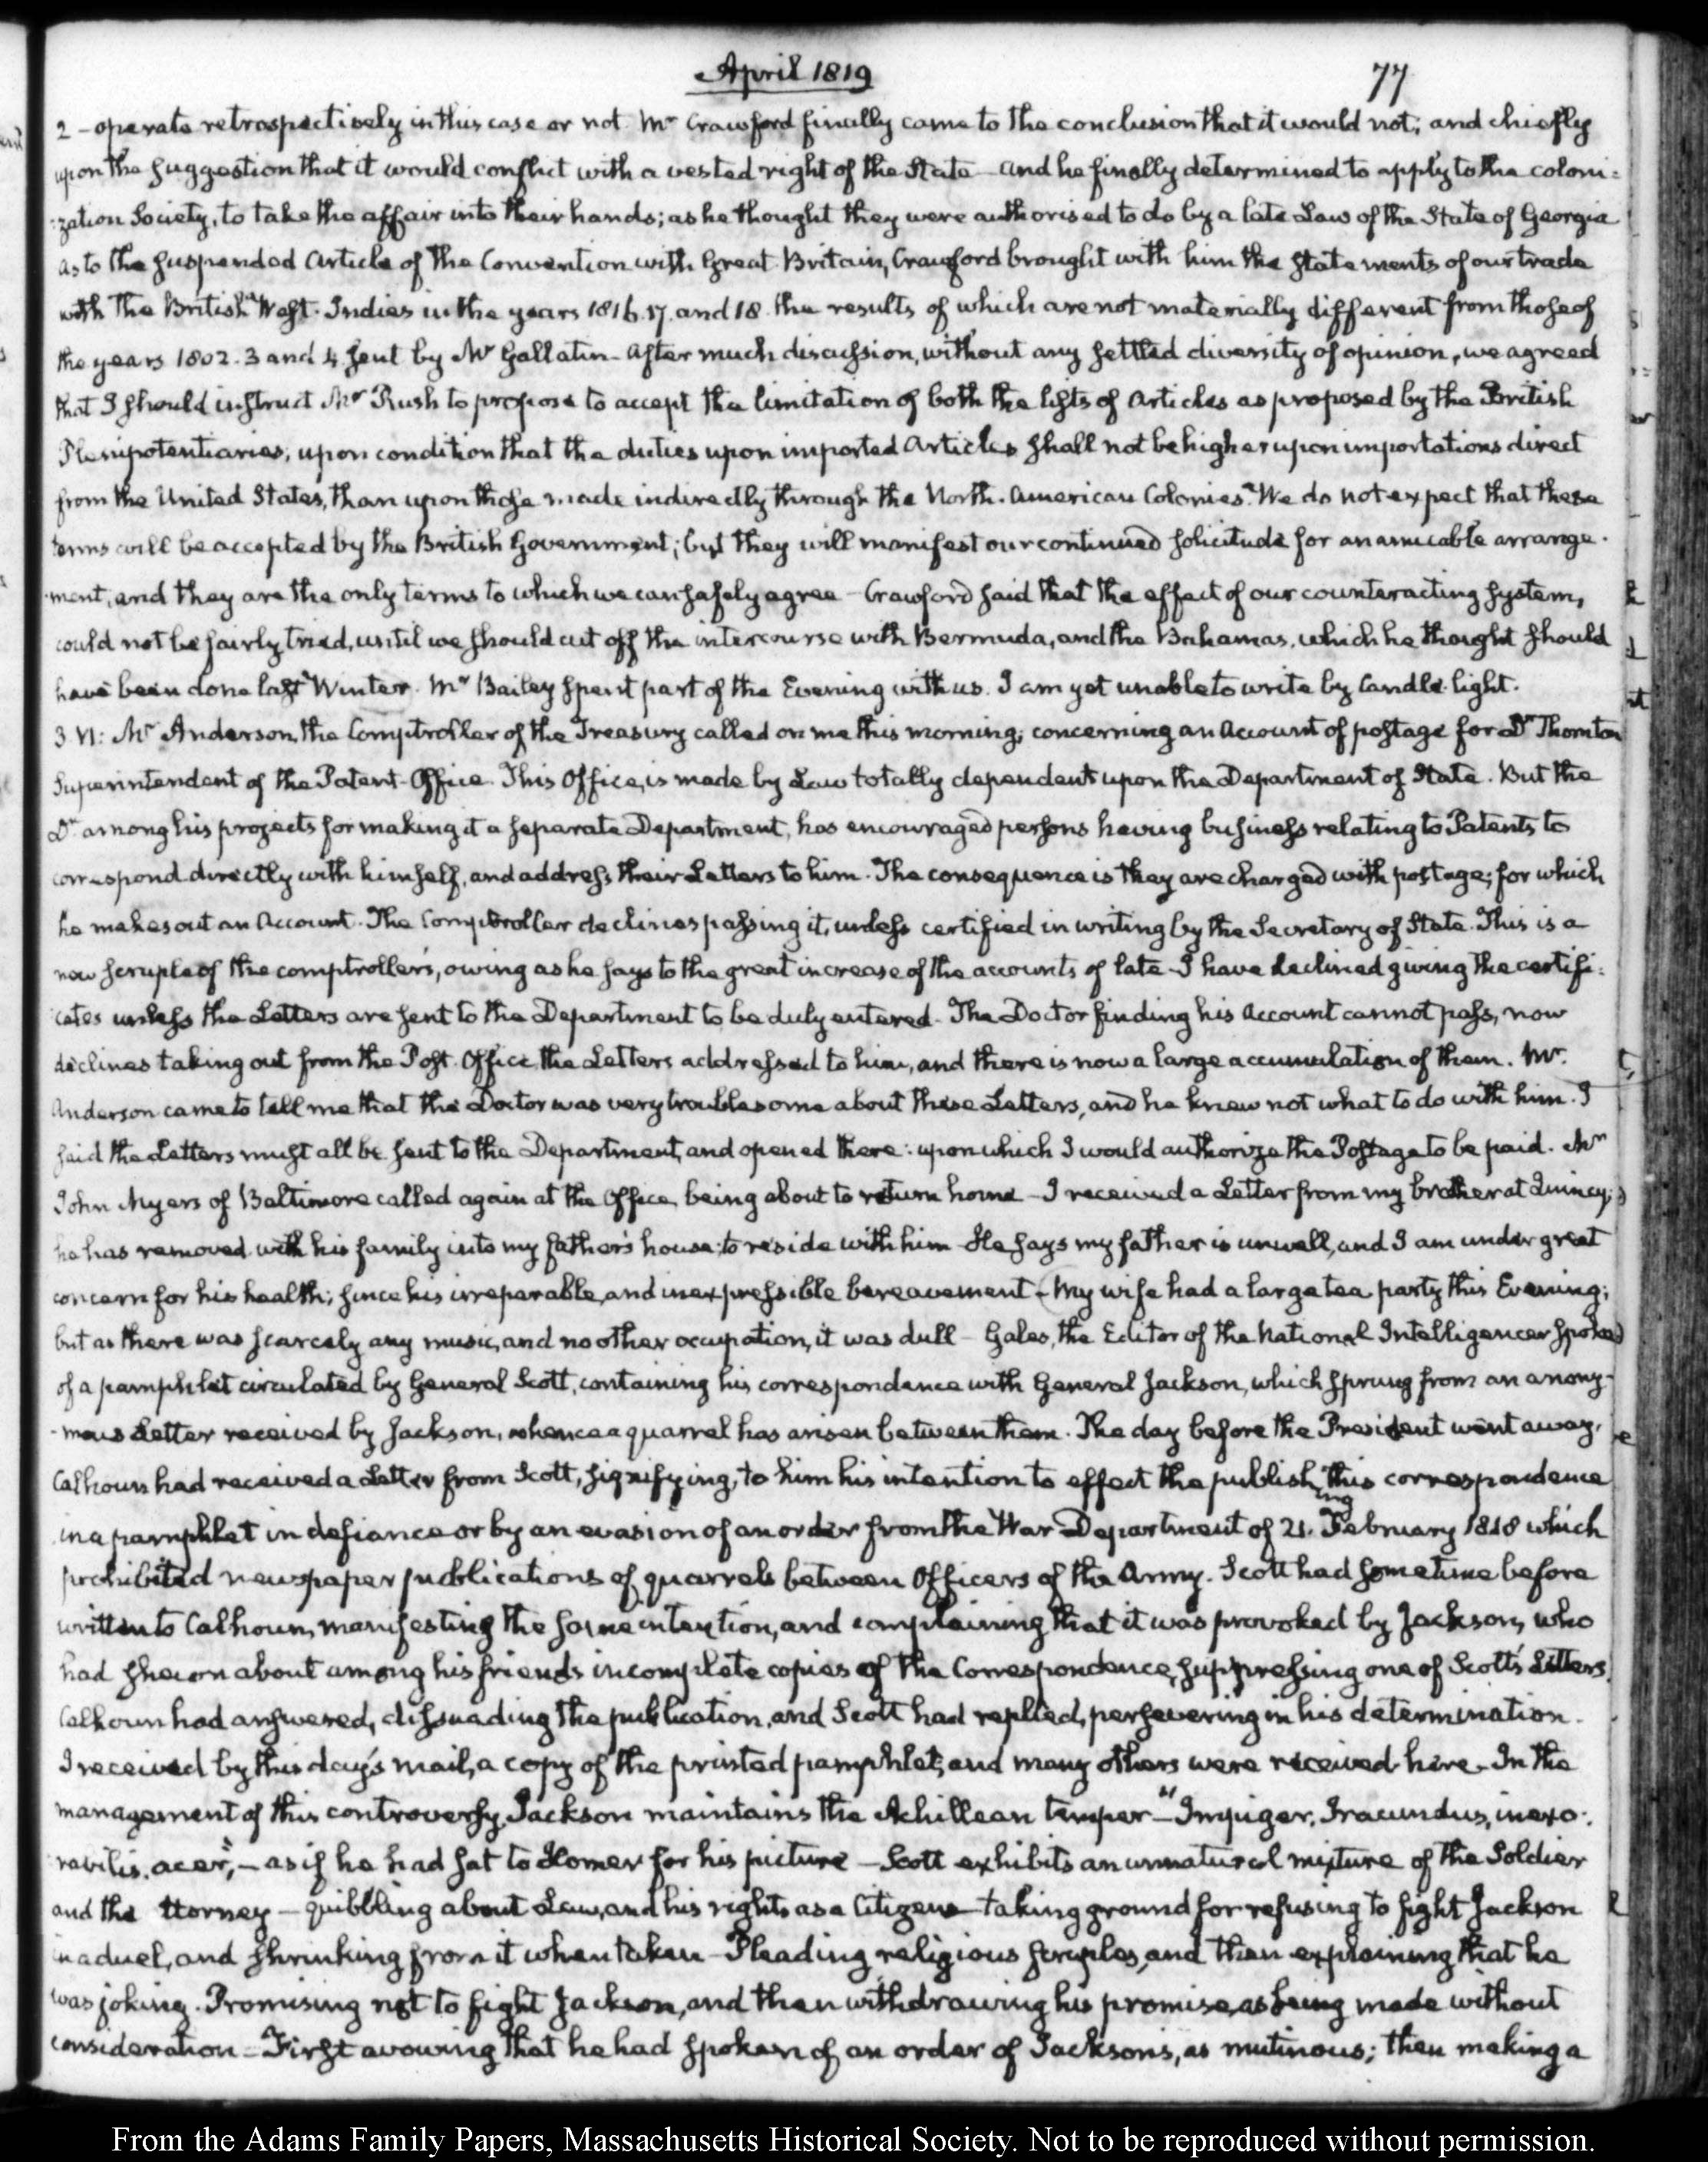 April 1819
77
2 - operate retrospectively in this case or not. Mr Crawford finally came to the conclusion that it would not; and chiefly
upon the suggestion that it would conflict with a vested right of the State - and he finally determined to apply to the coloni=
=zation Society, to take the affair into their hands; as he thought they were authorised to do by a late Law of the State of Georgia
As to the suspended Article of the Convention with Great-Britain, Crawford brought with him the statements of our trade
with the British West-Indies in the years 1816. 17. and 18. the results of which are not materially different from those of
the years 1802. 3 and 4 sent by Mr Gallatin - After much discussion, without any settled diversity of opinion, we agreed
that I should instruct Mr Rush to propose to accept the limitation of both the lists of Articles as proposed by the British
Plenipotentiaries, upon condition that the duties upon imported Articles shall not be higher upon importations direct
from the United States, than upon those made indirectly through the North-American Colonies. We do not expect that these
terms will be accepted by the British Government; but they will manifest our continued solicitude for an amicable arrange-
-ment, and they are the only terms to which we can safely agree - Crawford said that the effect of our counteracting system,
could not be fairly tried, until we should cut off the intercourse with Bermuda, and the Bahamas, which he thought should
have been done last Winter. Mr Bailey spent part of the Evening with us. I am yet unable to write by Candle-light.
3 VI: Mr Anderson, the Comptroller of the Treasury called on me this morning; concerning an Account of postage for Dr Thornton
Superintendent of the Patent-Office. This Office, is made by Law totally dependent upon the Department of State. But the
Dr among his projects for making it a separate Department, has encouraged persons having business relating to Patents to
correspond directly with himself, and address their Letters to him. The consequence is they are charged with postage; for which
he makes out an Account. The Comptroller declines passing it, unless certified in writing by the Secretary of State. This is a
new scruple of the comptroller's, owing as he says to the great increase of the accounts of late - I have declined giving the certifi=
cates unless the Letters are sent to the Department to be duly entered. The Doctor finding his Account cannot pass, now
declines taking out from the Post-Office the Letters addressed to him, and there is now a large accumulation of them. Mr.
Anderson came to tell me that the Doctor was very troublesome about these Letters, and he knew not what to do with him. I
said the Letters must all be sent to the Department, and opened there: upon which I would authorize the Postage to be paid. Mr
John Myers of Baltimore called again at the Office, being about to return home - I received a Letter from my brother at Quincy;
he has removed with his family into my father's house, to reside with him - He says my father is unwell, and I am under great
concern for his health; since his irreparable, and inexpressible bereavement - My wife had a large tea party this Evening;
but as there was scarcely any music, and no other occupation, it was dull - Gales, the Editor of the National Intelligencer spoke
of a pamphlet circulated by General Scott, containing his correspondence with General Jackson, which sprung from an anony-
-mous Letter received by Jackson, whence a quarrel has arisen between them. The day before the President went away,
Calhoun had received a Letter from Scott, signifying, to him his intention to effect the publishing this correspondence
in a pamphlet in defiance or by an evasion of an order from the War Department of 21. February 1818 which
prohibited newspaper publications of quarrels between Officers of the Army. Scott had sometime before
written to Calhoun, manifesting the same intention, and complaining that it was provoked by Jackson, who
had shewn about among his friends incomplete copies of the Correspondence, suppressing one of Scott's Letters.
Calhoun had answered, dissuading the publication, and Scott had replied, persevering in his determination.
I received by this day's mail, a copy of the printed pamphlet, and many others were received here - In the
management of this controversy, Jackson maintains the Achillean temper - "Impiger, Iracundus, inexo-
rabilis, acer", - as if he had sat to Homer for his picture - Scott exhibits an unnatural mixture of the Soldier
and the ttorney - quibbling about Law, and his rights as a Citizen - taking ground for refusing to fight Jackson
in a duel, and shrinking from it when taken - Pleading religious scruples, and then explaining that he
was joking. Promising not to fight Jackson, and then withdrawing his promise, as being made without
consideration - First avowing that he had spoken of an order of Jackson's, as mutinous; then making a
From the Adams Family Papers, Massachusetts Historical Society. Not to be reproduced without permission.